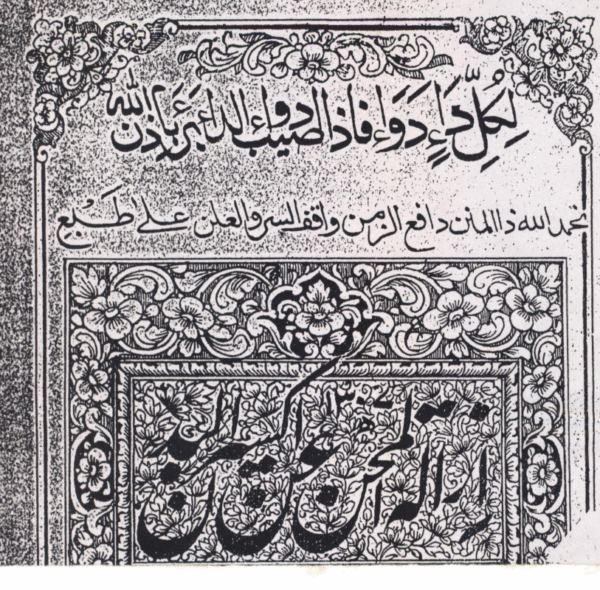 لِكُلِّ دَاءٍ دَوَاء فاذا اصيب دواء الداء برئ باذن الله
نحمد الله ذا المنن دافع الزمن واقف السر والعلن علی طبع
ازالة المحن عن اكسير البدن